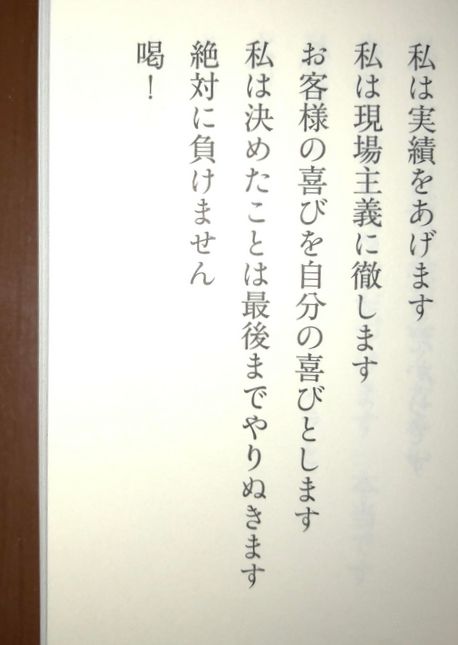 私は実績をあげます
私は現場主義に徹します
お客様の喜びを自分の喜びとします
私は決めたことは最後までやりぬきます
絶対に負けません
喝！